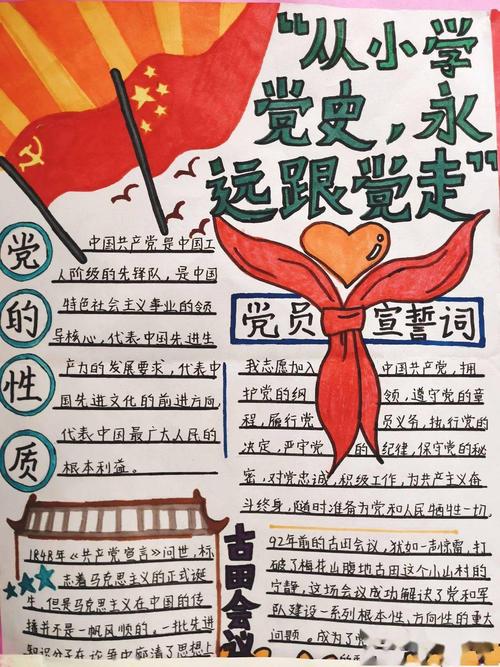 “从小学
党史，永
远跟党走”
党的性质
中国共产党是中国工
人阶级的先锋队，是中国
特色社会主义事业的领
导核心，代表中国先进生
产力的发展要求，代表中
国先进文化的前进方向，
代表中国最广大人民的
根本利益。
党员宣誓词
我志愿加入中国共产党，拥
护党的纲领，遵守党的章
程，履行党员义务，执行党的
决定，严守党的纪律，保守党的秘
密，对党忠诚，积极工作，为共产主义奋
斗终身，随时准备为党和人民牺牲一切，
1848年《共产党宣言》问世，标
志着马克思主义的正式诞
生，但是马克思主义在中国的传
播并不是一帆风顺的，一批先进
知识分子在论争中廓清了思想上
古田会议
92年前的古田会议，犹如一声惊雷，打
破了梅花山腹地古田这个小山村的
宁静，这场会议成功解决了党和军
队建设一系列根本性、方向性的重大
问题。成为了党